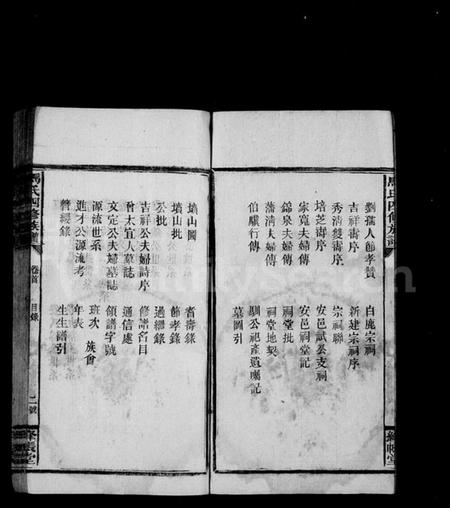 馬氏四修族譜
劉孺人節孝贊 白鹿宗祠
吉祥壽序 新建宗祠序
秀清雙壽序 宗祠聯
培芝壽序 安邑試公支祠
家寬夫婦傳 安邑祠堂記
錦泉夫婦傳 祠堂批
蒲清人婦傳 祠堂地契
伯驥行傳 馴公祀產遺囑記
墓圖引
墳山圖 省壽錄
墳山批 節孝錄
公批 過繼錄
吉祥公夫婦詩序 修譜名目
曾太宜人墓誌 通信處
文定公夫婦墓誌 領譜字號
源流世系 班次 族會
進才公源流考 年表
簪纓錄 生生譜引
馬氏四修族譜 卷首 目錄 二號